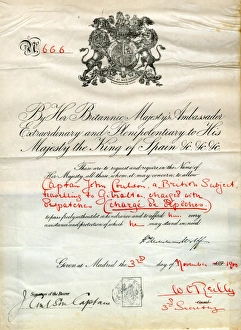 No. 666
By Her Britannic Majesty's Ambassador
Extraordinary and Plenipotentiary to His
Majesty the King of Spain &c. &c. &c.
These are to request and require, in the Name of
Her Majesty, all those whom it may concern, to allow
Captain John Coulson, a British Subject,
travelling to Gibraltar charged with
Despatches (chargé de dépêches)
to pass freely without let or hindrance and to afford him every
assistance and protection of which he may stand in need.
Given at Madrid the 3rd day of November
Signature of the Bearer
J. Coulson Captain
3d Secretary